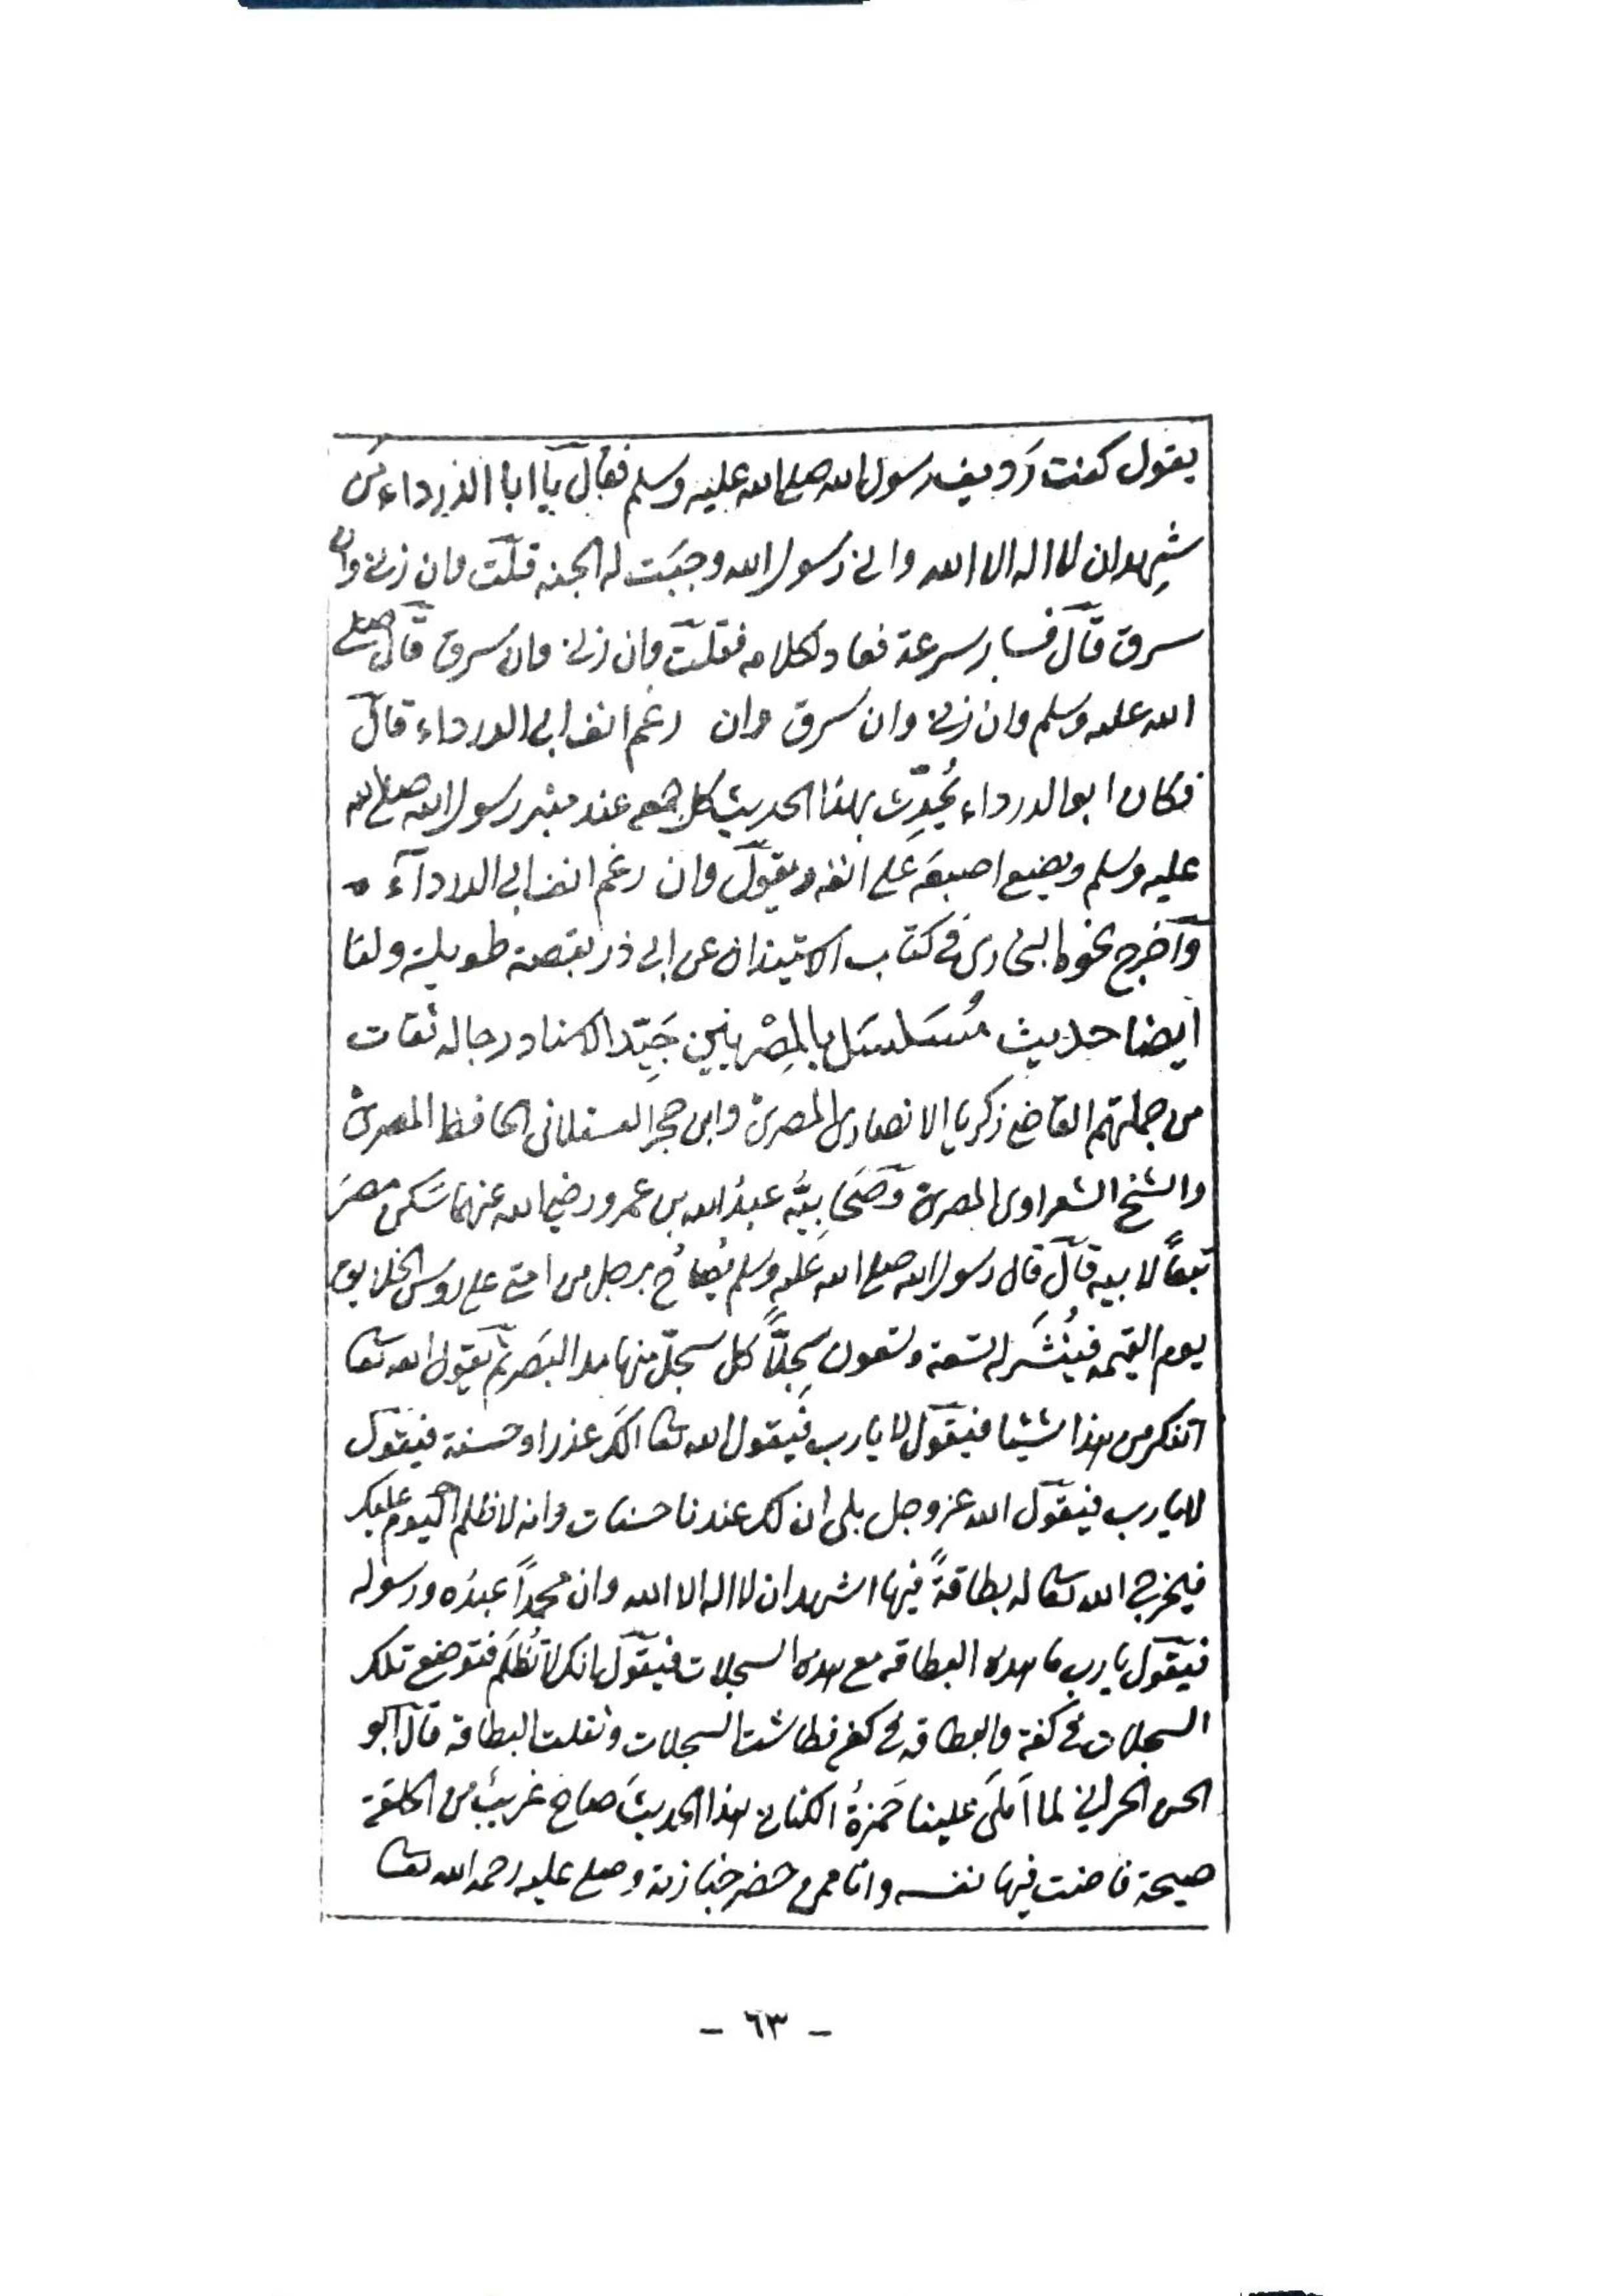 يقول كنت رَديف رسول الله صلى الله عليه وسلم فقال يا ابا الدرداء من
شهد ان لا اله الا الله واني رسول الله وجبت له الجنه قلت وان زنى وان
سرق قال فسار سرعة فعاد لكلامه فقلت وان زنى وان سرق قال صلى
الله عليه وسلم وان زنى وان سرق وان رغم انف ابى الدرداء قال
فكان ابو الدرداء يُحدِّث بهذا الحديث كل جمعه عند منبر رسول الله صلى الله
عليه وسلم ويضع اصبعَه على انفه ويقول وان رغم انف ابى الدردآء
وآخرج نحوه البخارى فى كتاب الاستيذان عن ابى ذر بقصة طويلة ولنا
ايضا حديث مُسَلسَل بالمِصْريين جَيّد الاسناد رجاله ثقات
من جملتهم القاضى زكريا الانصارى المصرى وابن حجر العسقلانى الحافظ المصرى
والشخ الشعراوى المصرى وصَحَابيُّه عبدُ الله بن عمرو رضى الله عنهما سَكن مصرَ
تبعًا لابيه قال قال رسول الله صلى الله عليه وسلم يُصَاحُ برجل من امتى على روس الخلايق
يوم القيمه فيُنْشَر له تسعة وتسعون سِجلّاً كل سجلّ منها مد البَصَر ثم يقول الله تعا
اتنكر من هذا شيئا فيقول لا يا رب فيقول الله تعا الك عذر او حسنة فيقول
لا يارب فيقول الله عز وجل بلى ان لك عندنا حسنات وانه لا ظلم اليوم عليك
فيخرج الله تعا له بطاقةً فيها اشهد ان لا اله الا الله وان محمداً عبدُه ورسوله
فيقول يا رب ما هذه البطاقه مع هذه السجلات فيقول انك لا تُظلَم فتوضع تلك
السجلات فى كفة والبطاقه فى كفه فطاشت السجلات وثقلت البطاقة قال ابو
الحسن الحرانى لما اَملَى علينا حَمزةُ الكنانى هذا الحديثَ صاح غريبٌ من الحلقة
صيحة فاضت فيها نفسه وانا ممن حضر جنازته وصلى عليه رحمه الله تعا
- ٦٣ -